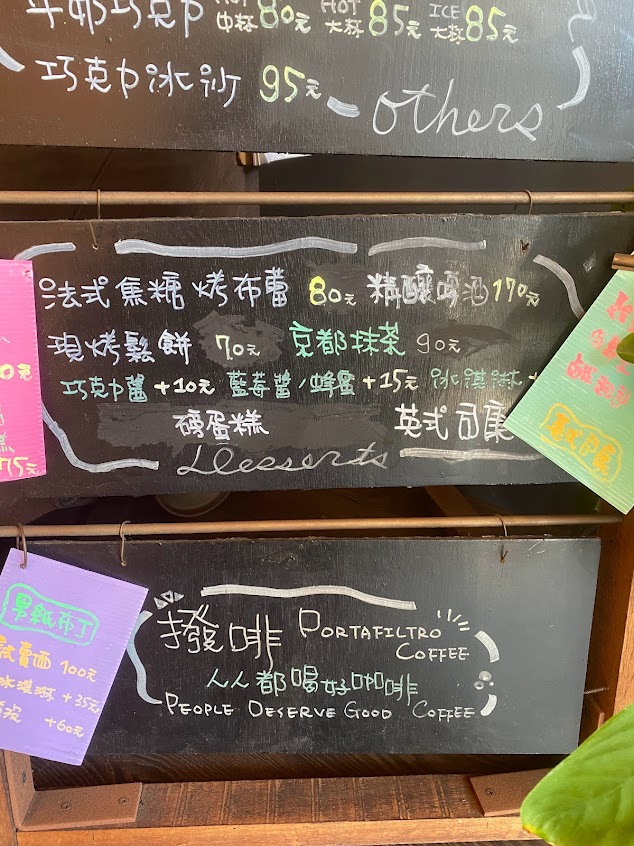 牛奶巧克力 中杯80元 HOT 大杯85元 ICE 大杯85元
巧克力冰沙 95元
Others
法式焦糖烤布蕾 80元 精釀啤酒 170元
現烤鬆餅 70元 京都抹茶 90元
巧克力醬 +10元 藍莓醬/蜂蜜 +15元 冰淇淋 +
磅蛋糕 英式司康
Desserts
75元
英式司康
果紙布丁
試賣價 100元
冰淇淋 +35元
+60元
撥啡 PORTAFILTRO
COFFEE
人人都喝好咖啡
PEOPLE DESERVE GOOD COFFEE